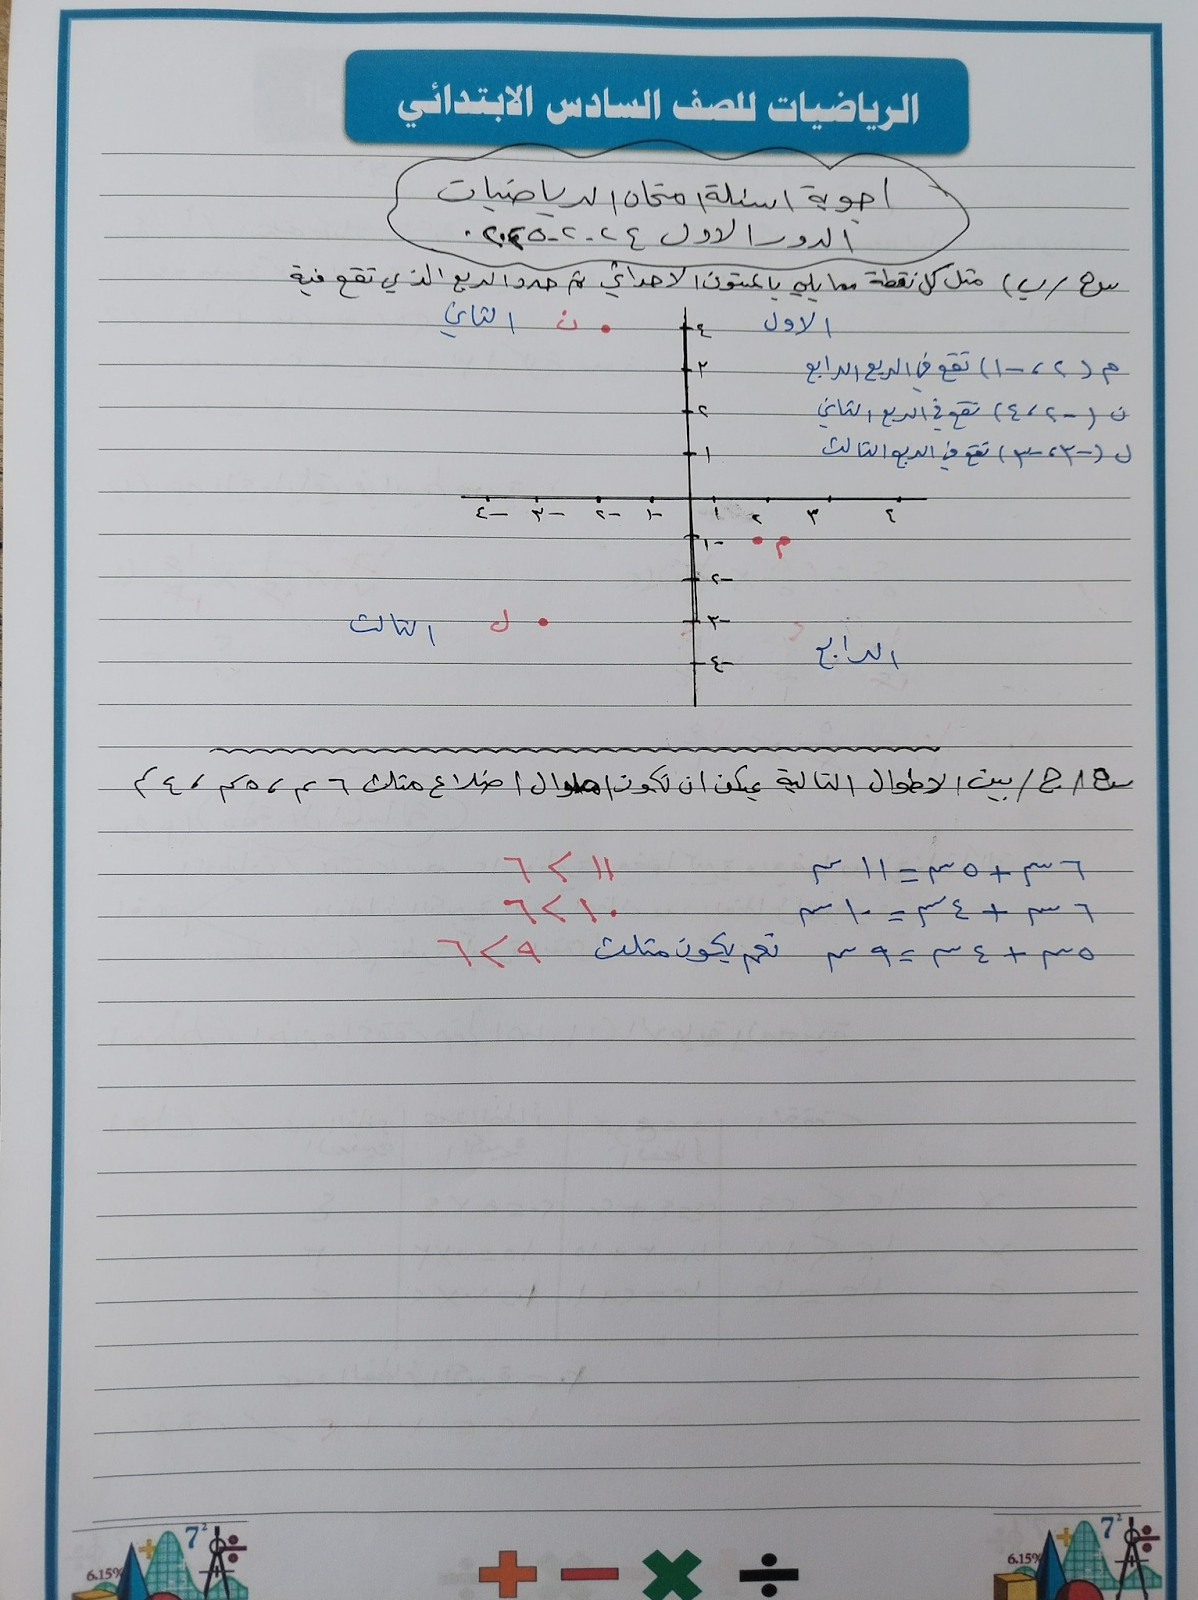 الرياضيات للصف السادس الابتدائي
اجوبة اسئلة امتحان الرياضيات
الدور الاول ٢٠٢٤-٢٠٢٥
ب) مثل كل نقطة مما يلي بالمستوي الاحداثي ثم حدد الربع الذي تقع فية
الاول
ن الثاني
م (٢، -١) تقع في الربع الرابع
ن (-٢، ٤) تقع في الربع الثاني
ل (-٣، -٣) تقع في الربع الثالث
٤
٣
٢
١
-٤ -٣ -٢ -١ ١ ٢ ٣ ٤
-١ م
-٢
-٣
ل الثالث
الرابع
-٤
ج/ بين الاطوال التالية يمكن ان تكون اطوال اضلاع مثلث ٦سم، ٥سم، ٤سم
٦سم + ٥سم = ١١سم ١١ > ٦
٦سم + ٤سم = ١٠سم ١٠ > ٦
٥سم + ٤سم = ٩سم نعم يكون مثلث ٩ > ٦
7²
6.15%
7²
6.15%